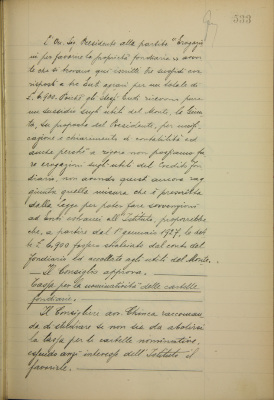 533
L'On. Sig. Presidente alla partita "Erogazio
ni per favorire la proprietà fondiaria" si avver
te che si trovano qui
risposti a tre Enti agrari per un totale di
L. 6.900. Poiché gli stessi Enti ricevono pure
un sussidio sugli utili del Monte, la Giun
ta, su proposta del Presidente, per
cazione e chiarimento di contabilità ed
anche perché a rigore non potremmo fa
re erogazioni sugli utili del Credito fon
diario, non avendo questi ancora rag
giunto quella misura che è prevista
dalla legge per poter fare sovvenzioni
ad Enti estranei all'Istituto, proporrebbe
che, a partire dal 1° gennaio 1927, le det
te L. 6.900 fossero stralciate dal conto del
fondiario ed accollate agli utili del Monte.
— Il Consiglio approva.
Tassa per la nominatività delle cartelle
fondiarie.
Il Consigliere avv. raccoman
da di studiare se non sia da abolirsi
la tassa per le cartelle nominative,
essendo anzi interesse dell'Istituto il
favorirle.